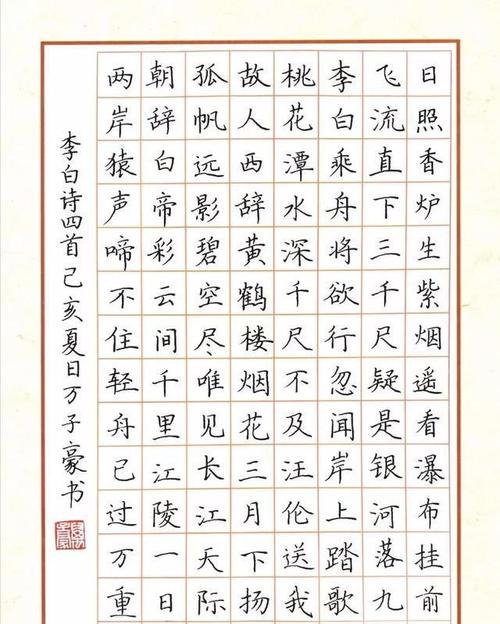 日照香炉生紫烟遥看瀑布挂前
飞流直下三千尺疑是银河落九
李白乘舟将欲行忽闻岸上踏歌
桃花潭水深千尺不及汪伦送我
故人西辞黄鹤楼烟花三月下扬
孤帆远影碧空尽唯见长江天际
朝辞白帝彩云间千里江陵一日
两岸猿声啼不住轻舟已过万重
李白诗四首己亥夏日万子豪书